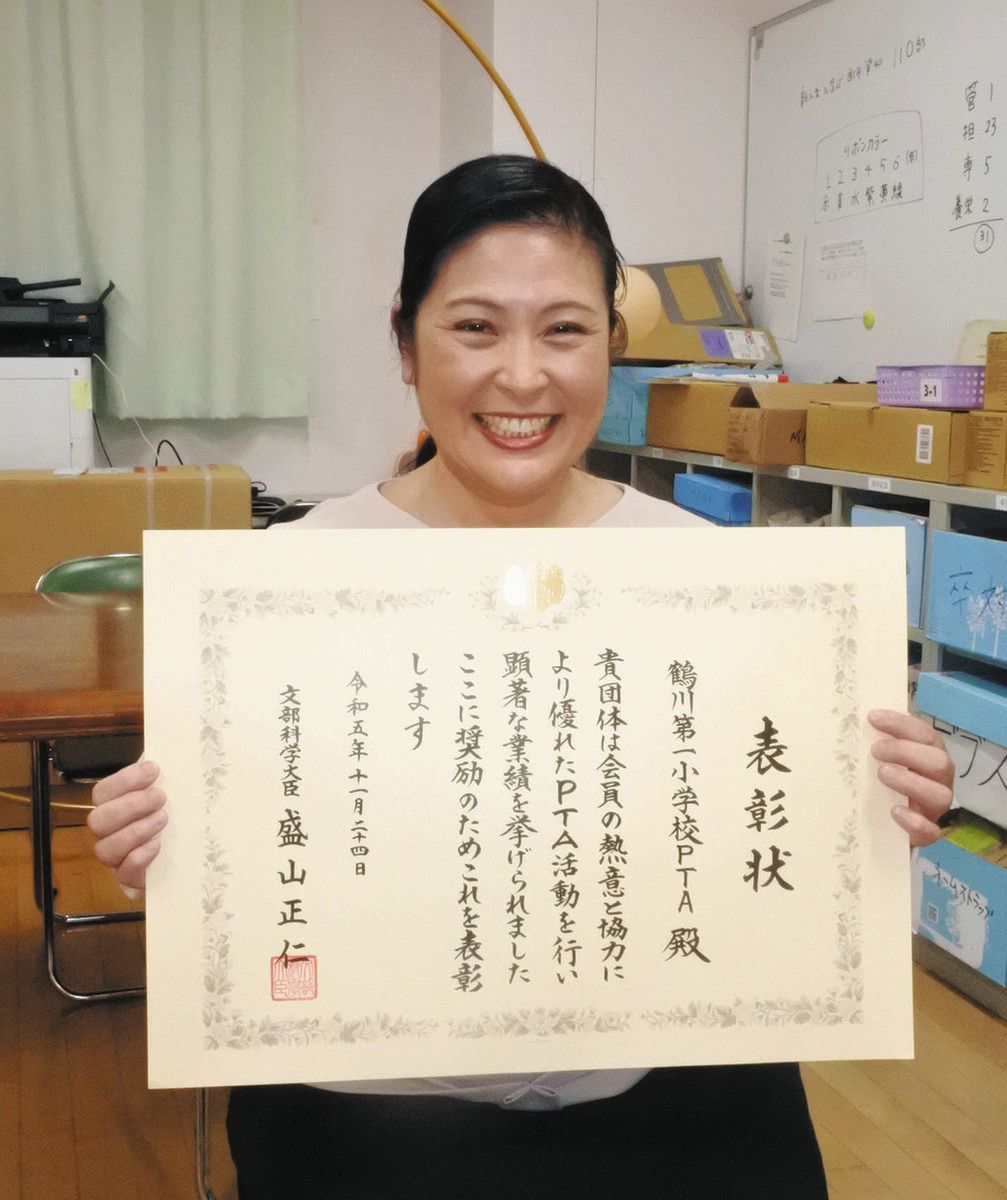 表彰状
鶴川第一小学校PTA 殿
貴団体は会員の熱意と協力に
より優れたPTA活動を行い
顕著な業績を挙げられました
ここに奨励のためこれを表彰
します
令和五年十一月二十四日
文部科学大臣 盛山正仁
110部
リボンカラー
1 2 3 4 5 6
赤 黄 水 紫 黄 緑
管 1
担 23
専 5
養栄 2
31
3-1
ネームストラップ